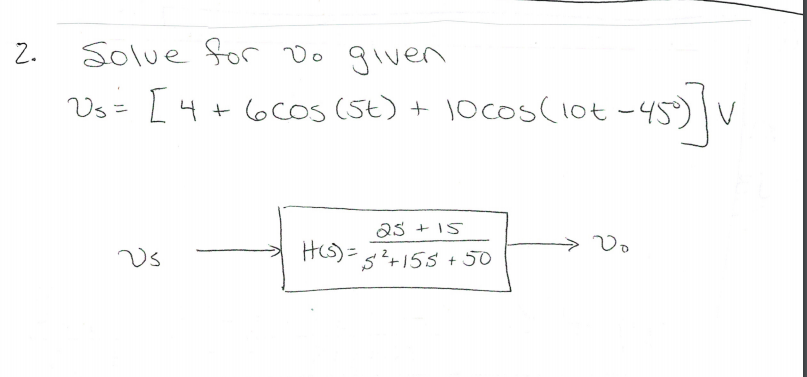 2. Solve for vo given
vs = [4 + 6cos(5t) + 10cos(10t - 45°)] V
vs → H(s) = 2s + 15 / s² + 15s + 50 → vo